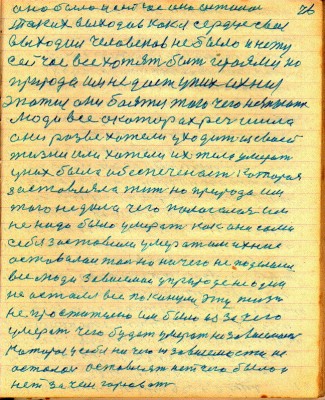 оно было и сей час оно осталось 76
таких выходов как и сердце своя
выходил человеков не было и нету
сей час все хотят быть героями но
природа им не дает у них ихния
знания они боятся того чего не знают
люди все о которых речь шла
они разве хотели уходить из своей
жизни или хотели их тело умерать
у них была обеспеченость которая
заставляла жить но природа им
того не дала чего полагалося им
не надо было умерать как они сами
себя заставили умерать
оставалося но ничего не поделаеш
все люди зависимая у природе не один
не остался все покинули эту жизнь
не простительно им было из за чего
умерать чего будет умерать независимая
которая у себя ни чего и зависимости не
осталося оставлять нет чего было и
нет за чем горевать